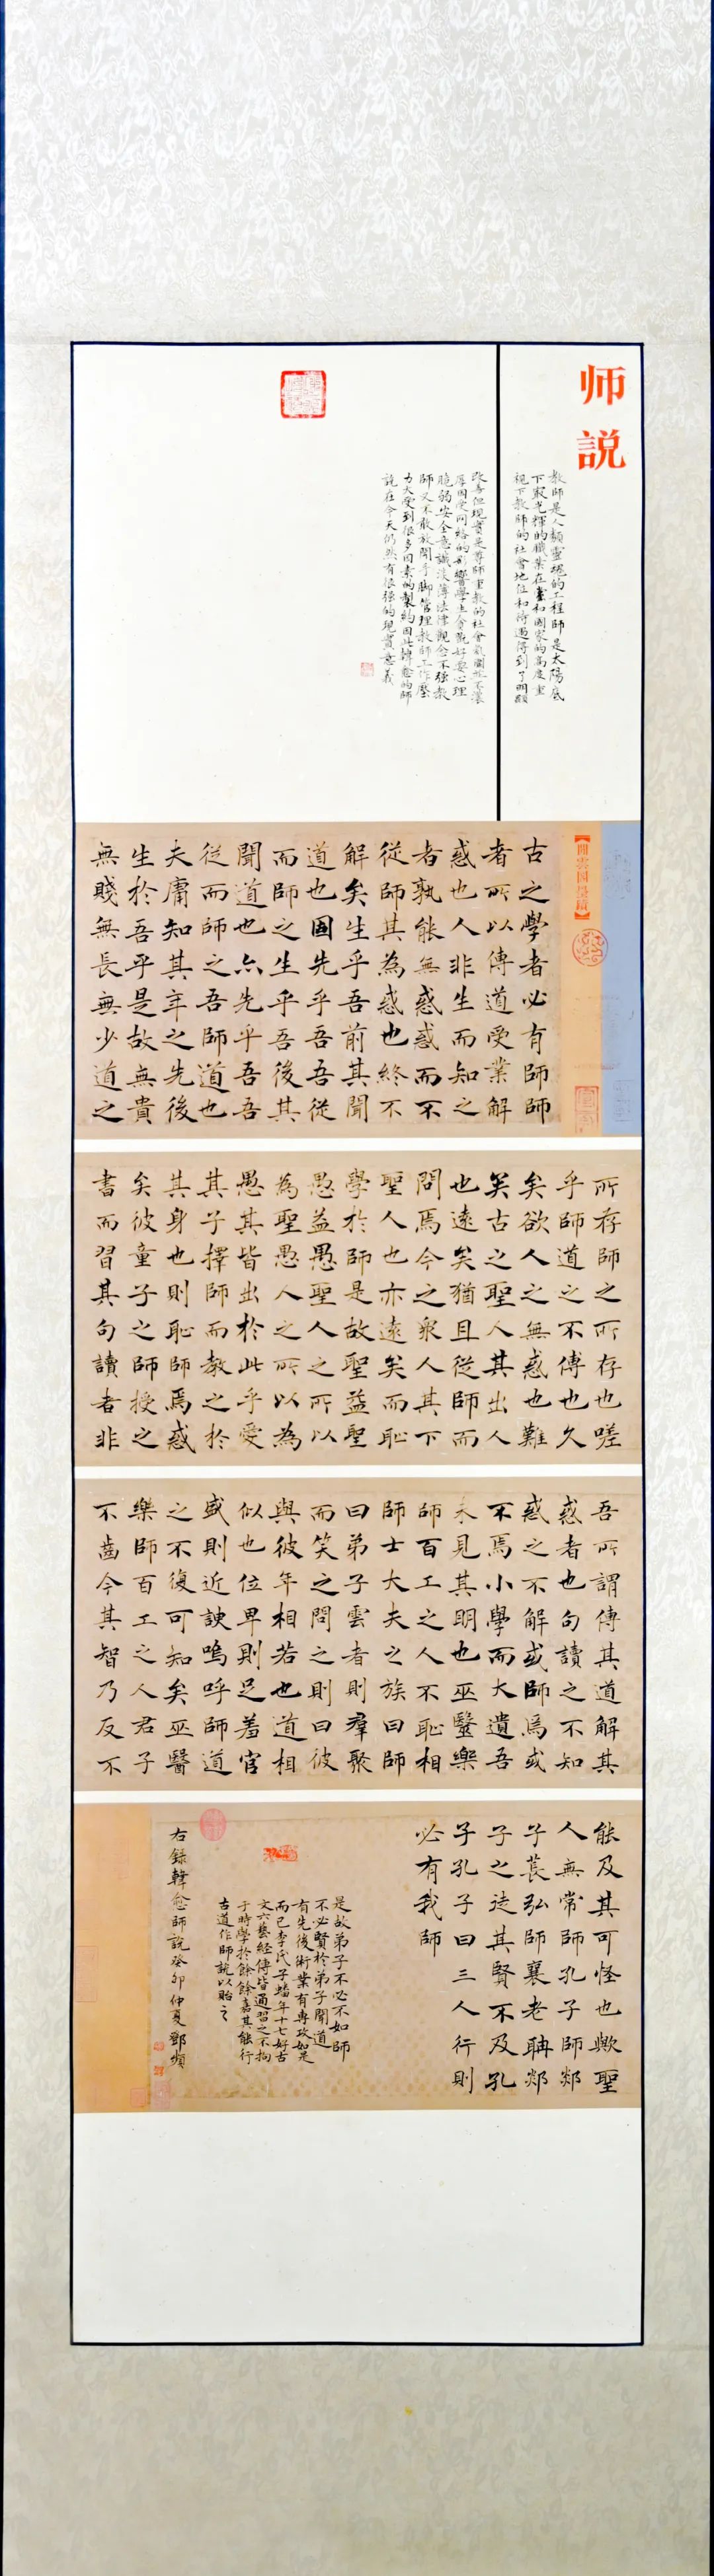 师説
教師是人類靈魂的工程師是太陽底
下最光輝的職業在黨和國家的高度重
視下教師的社會地位和待遇得到了明顯
改善但現實是尊師重教的社會氛圍并不濃
厚因受网絡的影響學生貪玩好耍心理
脆弱安全意識淡薄法律觀念不强教
師又不敢放開手脚管理教師工作壓
力大受到很多因素的製約因此韓愈的師
説在今天仍然有很强的現實意義
古之學者必有師師
者所以傳道受業解
惑也人非生而知之
者孰能無惑惑而不
從師其為惑也終不
解矣生乎吾前其聞
道也固先乎吾吾從
而師之生乎吾後其
聞道也亦先乎吾吾
從而師之吾師道也
夫庸知其年之先後
生於吾乎是故無貴
無賤無長無少道之
所存師之所存也嗟
乎師道之不傳也久
矣欲人之無惑也難
矣古之聖人其出人
也遠矣猶且從師而
問焉今之衆人其下
聖人也亦遠矣而恥
學於師是故聖益聖
愚益愚聖人之所以
為聖愚人之所以為
愚其皆出於此乎愛
其子擇師而教之於
其身也則恥師焉惑
矣彼童子之師授之
書而習其句讀者非
吾所謂傳其道解其
惑者也句讀之不知
惑之不解或師焉或
不焉小學而大遺吾
未見其明也巫醫樂
師百工之人不恥相
師士大夫之族曰師
曰弟子雲者則羣聚
而笑之問之則曰彼
與彼年相若也道相
似也位卑則足羞官
盛則近諛嗚呼師道
之不復可知矣巫醫
樂師百工之人君子
不齒今其智乃反不
能及其可怪也歟聖
人無常師孔子師郯
子萇弘師襄老聃郯
子之徒其賢不及孔
子孔子曰三人行則
必有我師
是故弟子不必不如師
不必賢於弟子聞道
有先後術業有專攻如是
而已李氏子蟠年十七好古
文六藝經傳皆通習之不拘
于時學於餘餘嘉其能行
古道作師說以貽之
右録韓愈師說癸卯仲夏鄧頻